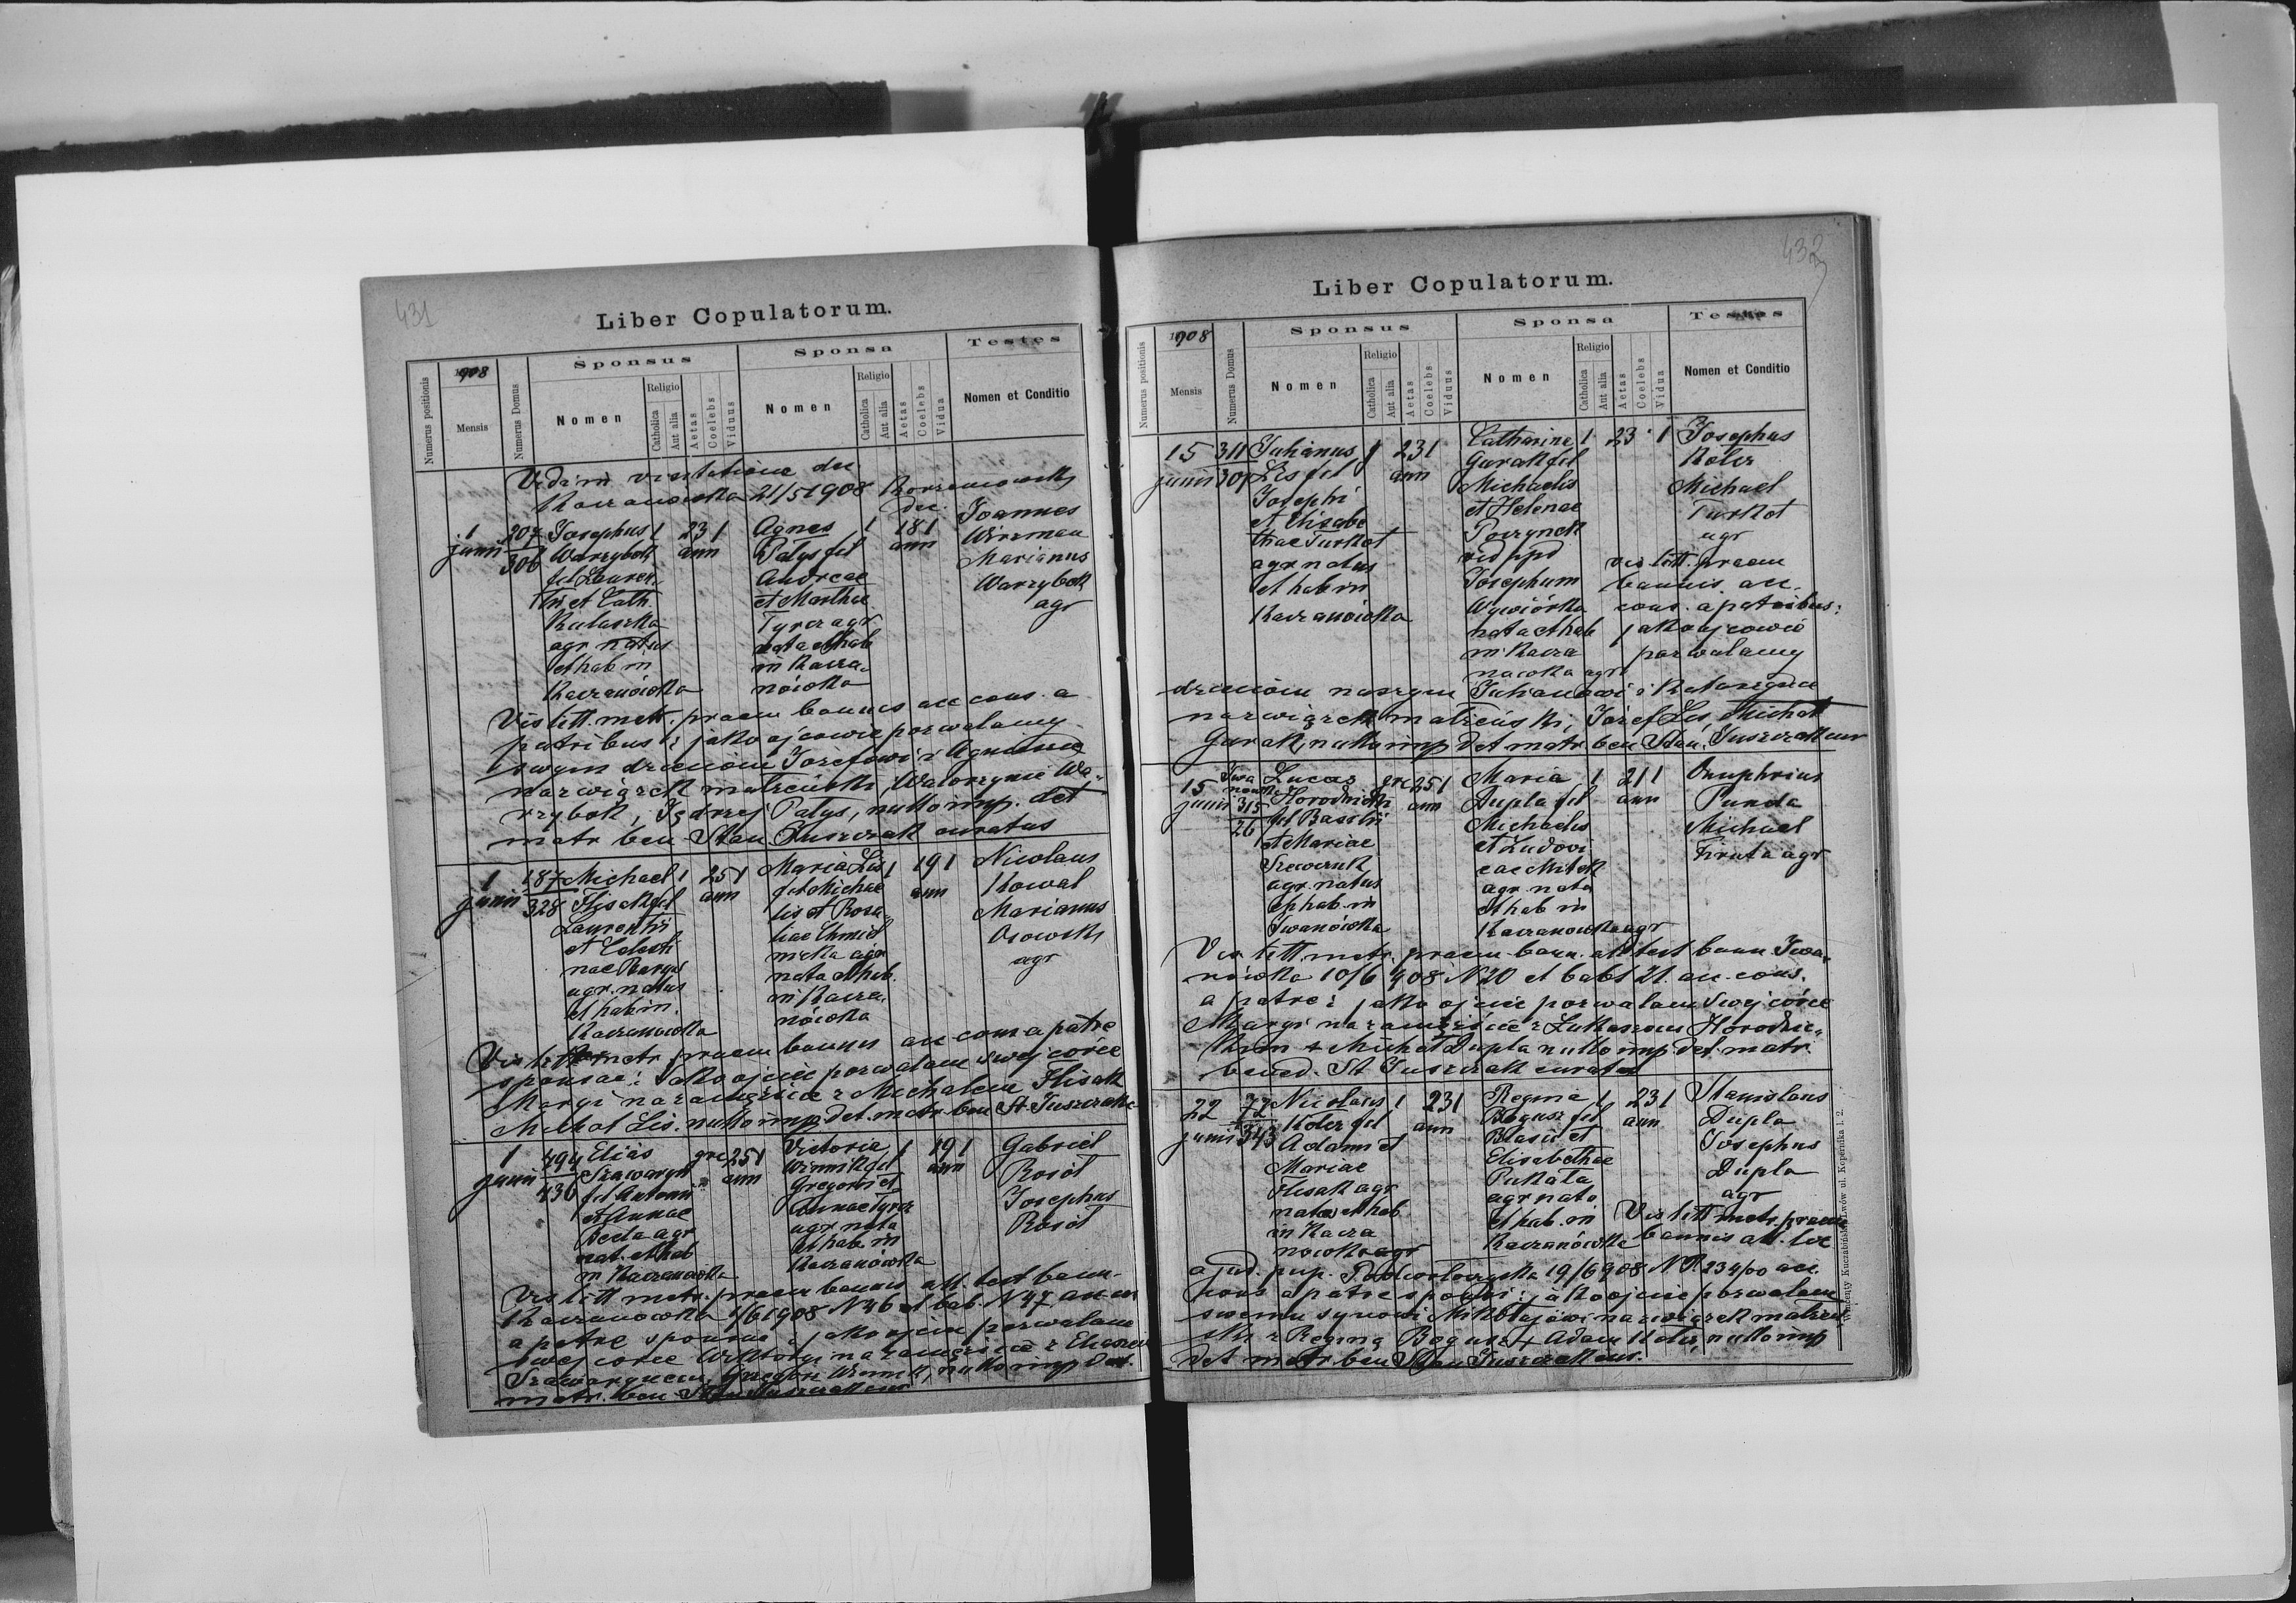 431
Liber Copulatorum.
Numerus positionis
1908
Mensis
Numerus Domus
Sponsus
Nomen
Religio
Catholica
Aut alia
Aetas
Coelebs
Viduus
Sponsa
Nomen
Religio
Catholica
Aut alia
Aetas
Coelebs
Vidua
Testes
Nomen et Conditio
Vidi in visitatione dec
Kaczanówka 21/5 1908
dec.
1 207 Josephus 1 23 1 Agnes 1 18 1 Joannes
junii 306 Warzybok ann Patys fil ann Wirzman
fil Lauren Andreae Marianus
tii et Cath. et Marthae Warzybok
Kulaszka Tyrcz agr agr
agr natus nata et hab
et hab in in Kacza
Kaczanówka nówka
Vis litt. metr. praem bannis acc cons. a
patribus: jako ojcowie pozwalamy
swym dzieciom Józefowi i Agnieszce
na związek małżeński, Wawrzyniec Wa-
rzybok, Jędrzej Patys, nullo imp. det
matr ben Stan Juszczak curatus
1 187 Michael 1 25 1 Maria Lis 1 19 1 Nicolaus
junii 328 Flisak fil ann fil Michae ann Kowal
Laurentii lis et Rosa Marianus
et Celesti liae Chmiel Osowski
nae Bargiel nicka agr agr
agr. natus nata et hab.
et hab in. in Kacza
Kaczanówka nówka
Vis litt metr praem bannis acc cons a patre
sponsae: Jako ojciec pozwalam swej córce
Maryi na zamęście z Michałem Flisak
Michał Lis. nullo imp. det. matr. ben St Juszczak
1 494 Elias gre 25 1 Victoria 1 19 1 Gabriel
junii 436 ann Winnik fil ann Rosół
fil Antonii Gregorii et Josephus
et Annae Annae Tyrcz Rosół
agr agr nata
nat. et hab et hab in
in Kaczanówka Kaczanówka
Vis litt metr. praem bannis att. test bann.
Kaczanówka 1/6 1908 N 46 et bab. N 47 acc cons
a patre sponsae: jako ojciec pozwalam
swej córce Wiktoryi na zamęście z Eliaszem
Gregorz Winnik, nullo imp Det.
matr. ben Stan Juszczak cur
432
Liber Copulatorum.
Numerus positionis
1908
Mensis
Numerus Domus
Sponsus
Nomen
Religio
Catholica
Aut alia
Aetas
Coelebs
Viduus
Sponsa
Nomen
Religio
Catholica
Aut alia
Aetas
Coelebs
Vidua
Testes
Nomen et Conditio
15 311 Julianus 1 23 1 Catharina 1 23 1 Josephus
junii 307 Lis fil ann Gurak fil Koler
Josephi Michaelis Michael
et Elisabe et Helenae Turkot
thae Turkot Poczynek agr
agr natus vid ppd vis litt. praem
et hab in Josephum bannis. acc.
Kaczanówka Wywiórka cons. a patribus:
nata et hab jako ojcowie
in Kacza pozwalamy
nówka agr
dzieciom naszym Julianowi i Katarzynie
na związek małżeński, Józef Lis, Michał
Gurak, nullo imp Det matr. ben Stan. Juszczak cur
15 Iwa Lucas gre 25 1 Maria 1 21 1 Onuphrius
junii nówka 315 Horodnicki ann Dupla fil ann Punda
26 fil Basilii Michaelis Michael
et Mariae et Ludovi Firuta agr
Szewczuk cae Mitek
agr. natus agr. nata
et hab. in et hab in
Iwanówka Kaczanówka agr
Vis litt metr. praem. bann. att test bann Iwa-
nówka 10/6 908 N 20 et babt 21. acc. cons.
a patre: jako ojciec pozwalam swej córce
Maryi na zamęście z Łukaszem Horodnic-
kim + Michał Dupla nullo imp Det. matr.
bened. St Juszczak curatus
22 72 Nicolaus 1 23 1 Regina 1 23 1 Stanislaus
junii 343 Koler fil ann Bogusz fil ann Dupla
Adami et Blasii et Josephus
Mariae Elisabethae Dupla
Flisak agr Pukała agr
natus et hab agr nata Vis litt metr. praem
in Kacza et hab. in bannis att. lic
nówka agr Kaczanówka
a jud. pup. Podwołoczyska 19/6 908 N. P. 234/00 acc.
cons a patre sponsi: jako ojciec pozwalam
swemu synowi Mikołajowi na związek małżeń-
ski z Reginą Bogusz + Adam Koler, nullo imp
Det matr. ben Stan Juszczak cur.
Wincenty Kuczabiński, Lwów ul. Kopernika l. 2.